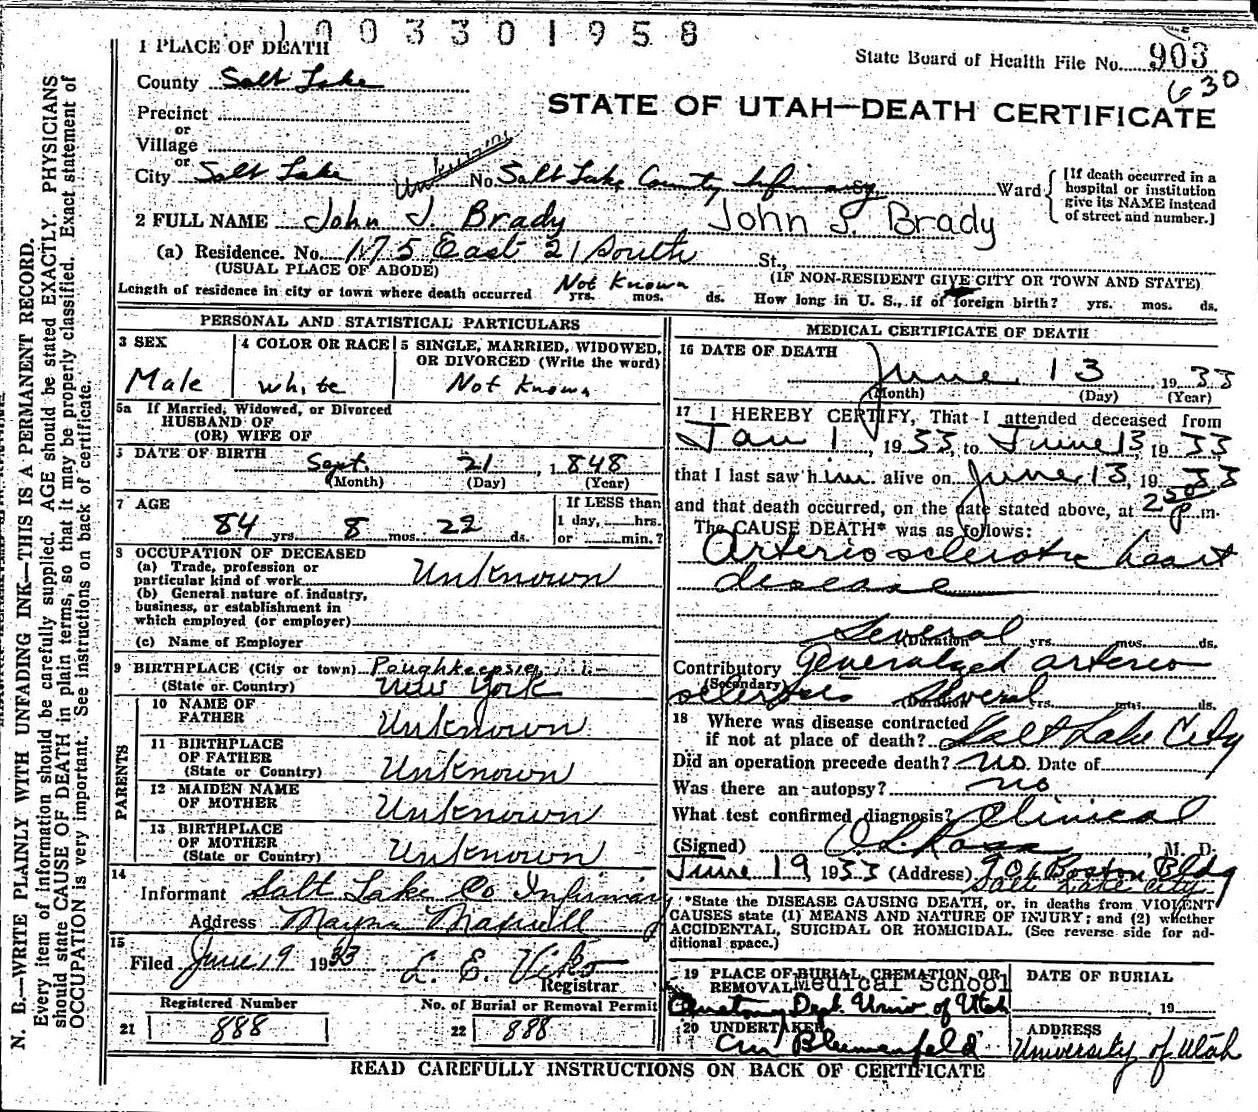 1003301958
State Board of Health File No. 903
630
1 PLACE OF DEATH
County Salt Lake
STATE OF UTAH—DEATH CERTIFICATE
Precinct
or
Village
or
City Salt Lake Unknown No. Salt Lake County Infirmary St. Ward
[If death occurred in a hospital or institution give its NAME instead of street and number.]
2 FULL NAME John J. Brady John J. Brady
(a) Residence. No. East 21 South St.,
(USUAL PLACE OF ABODE) (IF NON-RESIDENT GIVE CITY OR TOWN AND STATE)
Length of residence in city or town where death occurred Not Known yrs. mos. ds. How long in U. S., if of foreign birth? yrs. mos. ds.
PERSONAL AND STATISTICAL PARTICULARS
3 SEX
Male
4 COLOR OR RACE
white
5 SINGLE, MARRIED, WIDOWED,
OR DIVORCED (Write the word)
Not Known
5a If Married, Widowed, or Divorced
HUSBAND OF
(OR) WIFE OF
DATE OF BIRTH
Sept. 21, 1848
(Month) (Day) (Year)
7 AGE
84 yrs. 8 mos. 22 ds.
If LESS than
1 day, hrs.
or min.?
8 OCCUPATION OF DECEASED
(a) Trade, profession or
particular kind of work Unknown
(b) General nature of industry,
business, or establishment in
which employed (or employer)
(c) Name of Employer
9 BIRTHPLACE (City or town) Poughkeepsie
(State or Country) New York
PARENTS
10 NAME OF
FATHER Unknown
11 BIRTHPLACE
OF FATHER
(State or Country) Unknown
12 MAIDEN NAME
OF MOTHER Unknown
13 BIRTHPLACE
OF MOTHER
(State or Country) Unknown
14
Informant Salt Lake Co Infirmary
Address Mayna Maxwell
15
Filed June 19 1933 L. E. Viko
Registrar
Registered Number
21 888
No. of Burial or Removal Permit
22 888
MEDICAL CERTIFICATE OF DEATH
16 DATE OF DEATH
June 13, 1933
(Month) (Day) (Year)
17 I HEREBY CERTIFY, That I attended deceased from
Jan 1, 1933, to June 13, 1933
that I last saw him alive on June 13, 1933
and that death occurred, on the date stated above, at 2 50 P m.
The CAUSE DEATH* was as follows:
Arteriosclerotic heart
disease
Several
(Duration) yrs. mos. ds.
Contributory Generalized arterio
(Secondary)
sclerosis Several
(Duration) yrs. mos. ds.
18 Where was disease contracted
if not at place of death? Salt Lake City
Did an operation precede death? no Date of
Was there an autopsy? no
What test confirmed diagnosis? Clinical
(Signed) M. D.
June 19, 1933 (Address) 906 Boston Bldg
Salt Lake City
*State the DISEASE CAUSING DEATH, or, in deaths from VIOLENT
CAUSES state (1) MEANS AND NATURE OF INJURY; and (2) whether
ACCIDENTAL, SUICIDAL OR HOMICIDAL. (See reverse side for ad-
ditional space.)
19 PLACE OF BURIAL CREMATION OR
REMOVAL Medical School
Anatomy Dept. Univ of Utah
DATE OF BURIAL
19
20 UNDERTAKER
Cm Blumenfeld
ADDRESS
University of Utah
READ CAREFULLY INSTRUCTIONS ON BACK OF CERTIFICATE
N. B.—WRITE PLAINLY WITH UNFADING INK—THIS IS A PERMANENT RECORD.
Every item of information should be carefully supplied. AGE should be stated EXACTLY. PHYSICIANS
should state CAUSE OF DEATH in plain terms, so that it may be properly classified. Exact statement of
OCCUPATION is very important. See instructions on back of certificate.